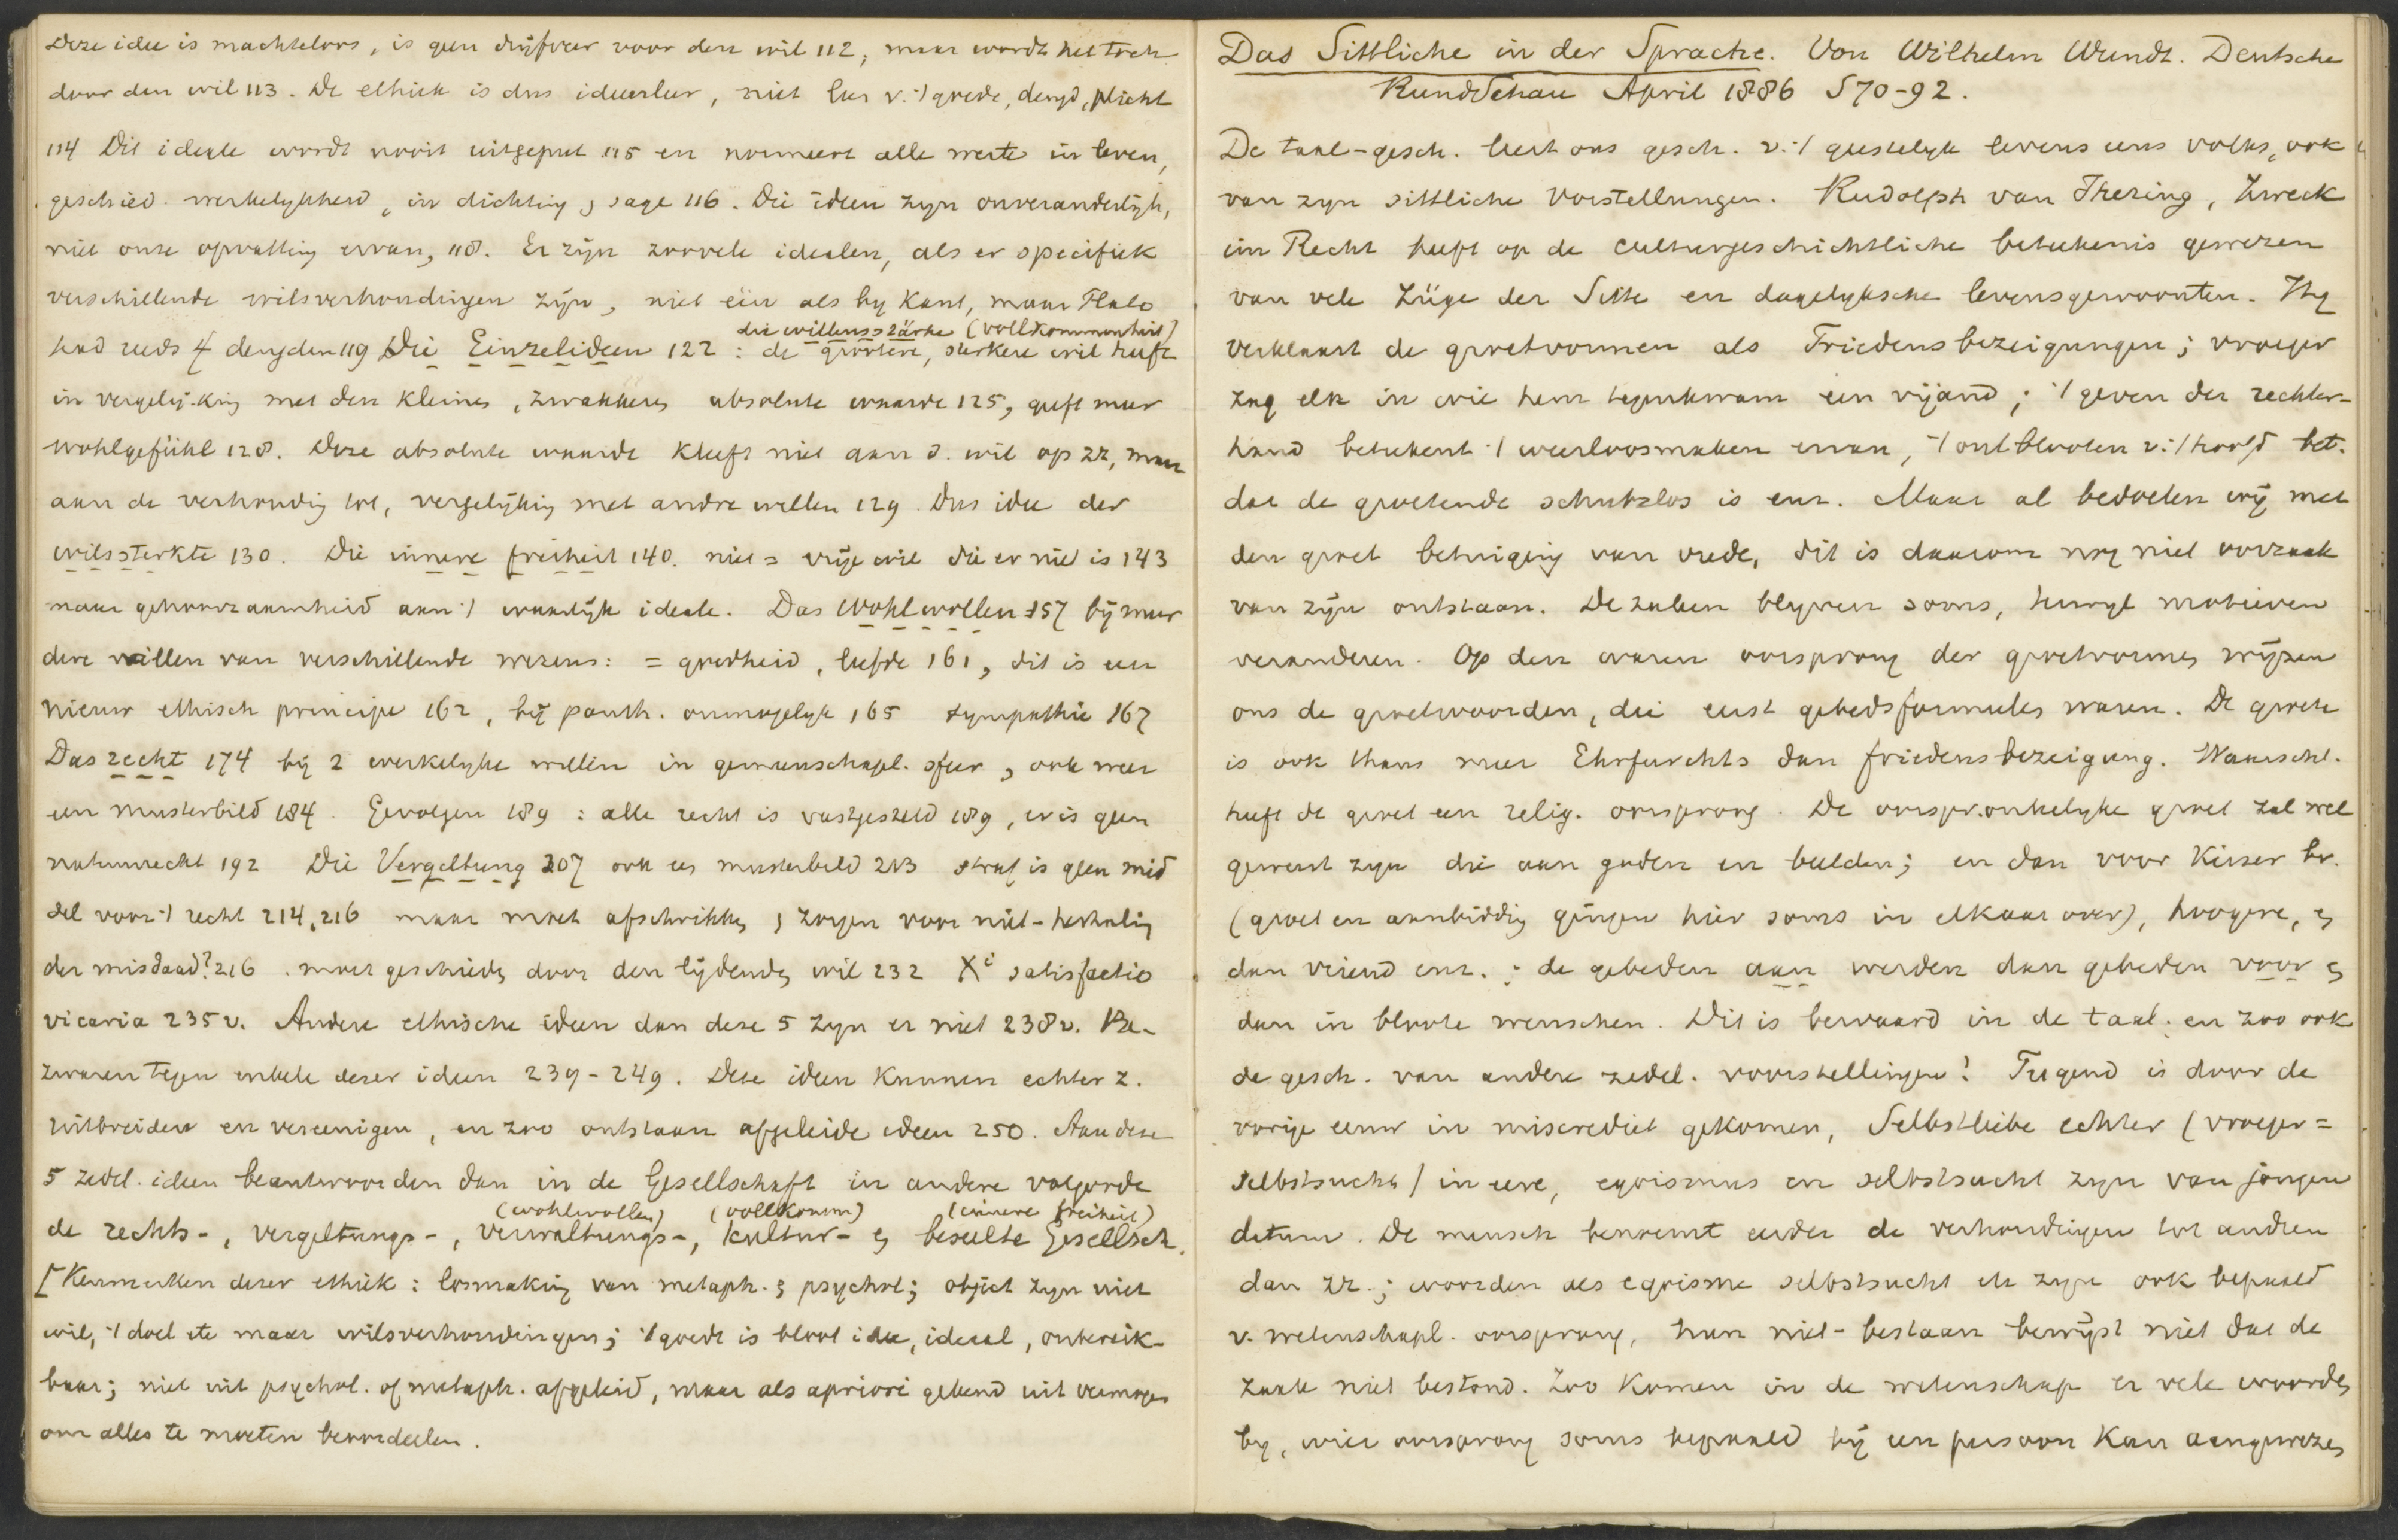 Deze idee is machteloos, is geen drijfveer voor den wil 112, maar wordt het toch
door den wil 113. De ethiek is dus ideenleer, niet leer v. 't goede, deugd, plicht
114 Dit ideale wordt nooit uitgeput 115 en normeert alle werte in leven,
geschied. werkelykheid, in dichting, sage 116. Die ideen zyn onveranderlijk,
niet onze opvatting ervan, 118. Er zijn zoovele idealen, als er specifiek
verschillende wilsverhoudingen zijn, niet één als by Kant, maar Plato
die willensstärke (vollkommenheit)
had reeds 4 deugden 119 Die Einzelideen 122 : de grootere, sterkere wil heeft
in vergelijking met den kleinen, zwakkeren absolute waarde 125, geeft meer
wohlgefühl 128. Deze absolute waarde kleeft niet aan d. wil op zz, maar
aan de verhouding tot, vergelijking met andre willen 129. Dus idee der
wilssterkte 130. Die innere freiheit 140. niet = vrije wil die er niet is 143
maar gehoorzaamheid aan 't waarlijk ideale. Das Wohlwollen 157 bij meer
dere willen van verschillende wezens: = goedheid, liefde 161, dit is een
nieuw ethisch principe 162, bij panth. onmogelyk 165 sympathie 167
Das recht 174 bij 2 werkelyke willen in gemeenschapl. sfeer, ook weer
een musterbild 184. Gevolgen 189 : alle recht is vastgesteld 189, er is geen
natuurrecht 192 Die Vergeltung 207 ook een musterbeld 213 straf is geen mid
del voor 't recht 214, 216 maar moet afschrikken, zorgen voor niet-herhaling
der misdaad? 216. moet geschieden door den lijdenden wil 232 Xi satisfactio
vicaria 235v. Andere ethische ideen dan deze 5 zyn er niet 238v. Be-
zwaren tegen enkele dezer ideen 239-249. Deze ideen kunnen echter z.
uitbreiden en vereenigen, en zoo ontstaan afgeleide ideen 250. Aan deze
5 zedel. ideen beantwoorden dan in de Gesellschaft in andere volgorde
(wohlwollen) (vollkomm) (innere freiheit)
de rechts-, vergeltungs-, verwaltungs-, kultur- en beseelte Gesellsch.
[Kenmerken dezer ethiek : losmaking van metaph. en psychol; object zyn niet
wil, 't doel etc maar wilsverhoudingen; 't goede is bloot idee, ideaal, onbereik-
baar; niet uit psychol. of metaph. afgeleid, maar als apriori geldend uit vermogen
om alles te moeten beoordeelen.
Das Sittliche in der Sprache. Von Wilhelm Wundt. Deutsche
Rundschau April 1886 S 70-92.
De taal-gesch. leert ons gesch. v. 't geestelyk levens eens volks, ook
van zyn sittliche Vorstellungen. Rudolph van Ihering, Zweck
im Recht heeft op de culturgeschichtliche beteekenis gewezen
van vele Züge der Sitte en dagelyksche levensgewoonten. Hy
verklaart de groetvormen als Friedensbezeigungen; vroeger
zag elk in wie hem tegenkwam een vijand; 't geven der rechter-
hand beteekent 't weerloosmaken ervan, 't ontblooten v. 't hoofd bet.
dat de groetende schutzlos is enz. Maar al bedoelen wij met
den groet betuiging van vrede, dit is daarom nog niet oorzaak
van zijn ontstaan. De zaken blyven soms, terwyl motieven
veranderen. Op den waren oorsprong der groetvormen wijzen
ons de groetwoorden, die eerst gebedsformules waren. De groet
is ook thans meer Ehrfurchts dan friedensbezeigung. Waarschl.
heeft de groet een relig. oorsprong. De oorspronkelyke groet zal wel
geweest zyn die aan goden en beelden; en dan voor Keizer bv.
(groet en aanbidding gingen hier soms in elkaar over), hoogere, en
dan vriend enz. : de gebeden aan werden dan gebeden voor en
dan in bloote wenschen. Dit is bewaard in de taal. en zoo ook
de gesch. van andere zedel. voorstellingen! Tugend is door de
vorige eeuw in miscrediet gekomen, Selbstliebe echter (vroeger =
selbstsucht) in eere, egoismus en selbstsucht zyn van jongen
datum. De mensch benoemt eerder de verhoudingen tot andren
dan zz.; woorden als egoisme selbstsucht etc zyn ook bepaald
v. wetenschapl. oorsprong, hun niet-bestaan bewijst niet dat de
zaak niet bestond. Zoo komen in de wetenschap er vele woorden
by, wier oorsprong soms bepaald bij een persoon kan aangewezen